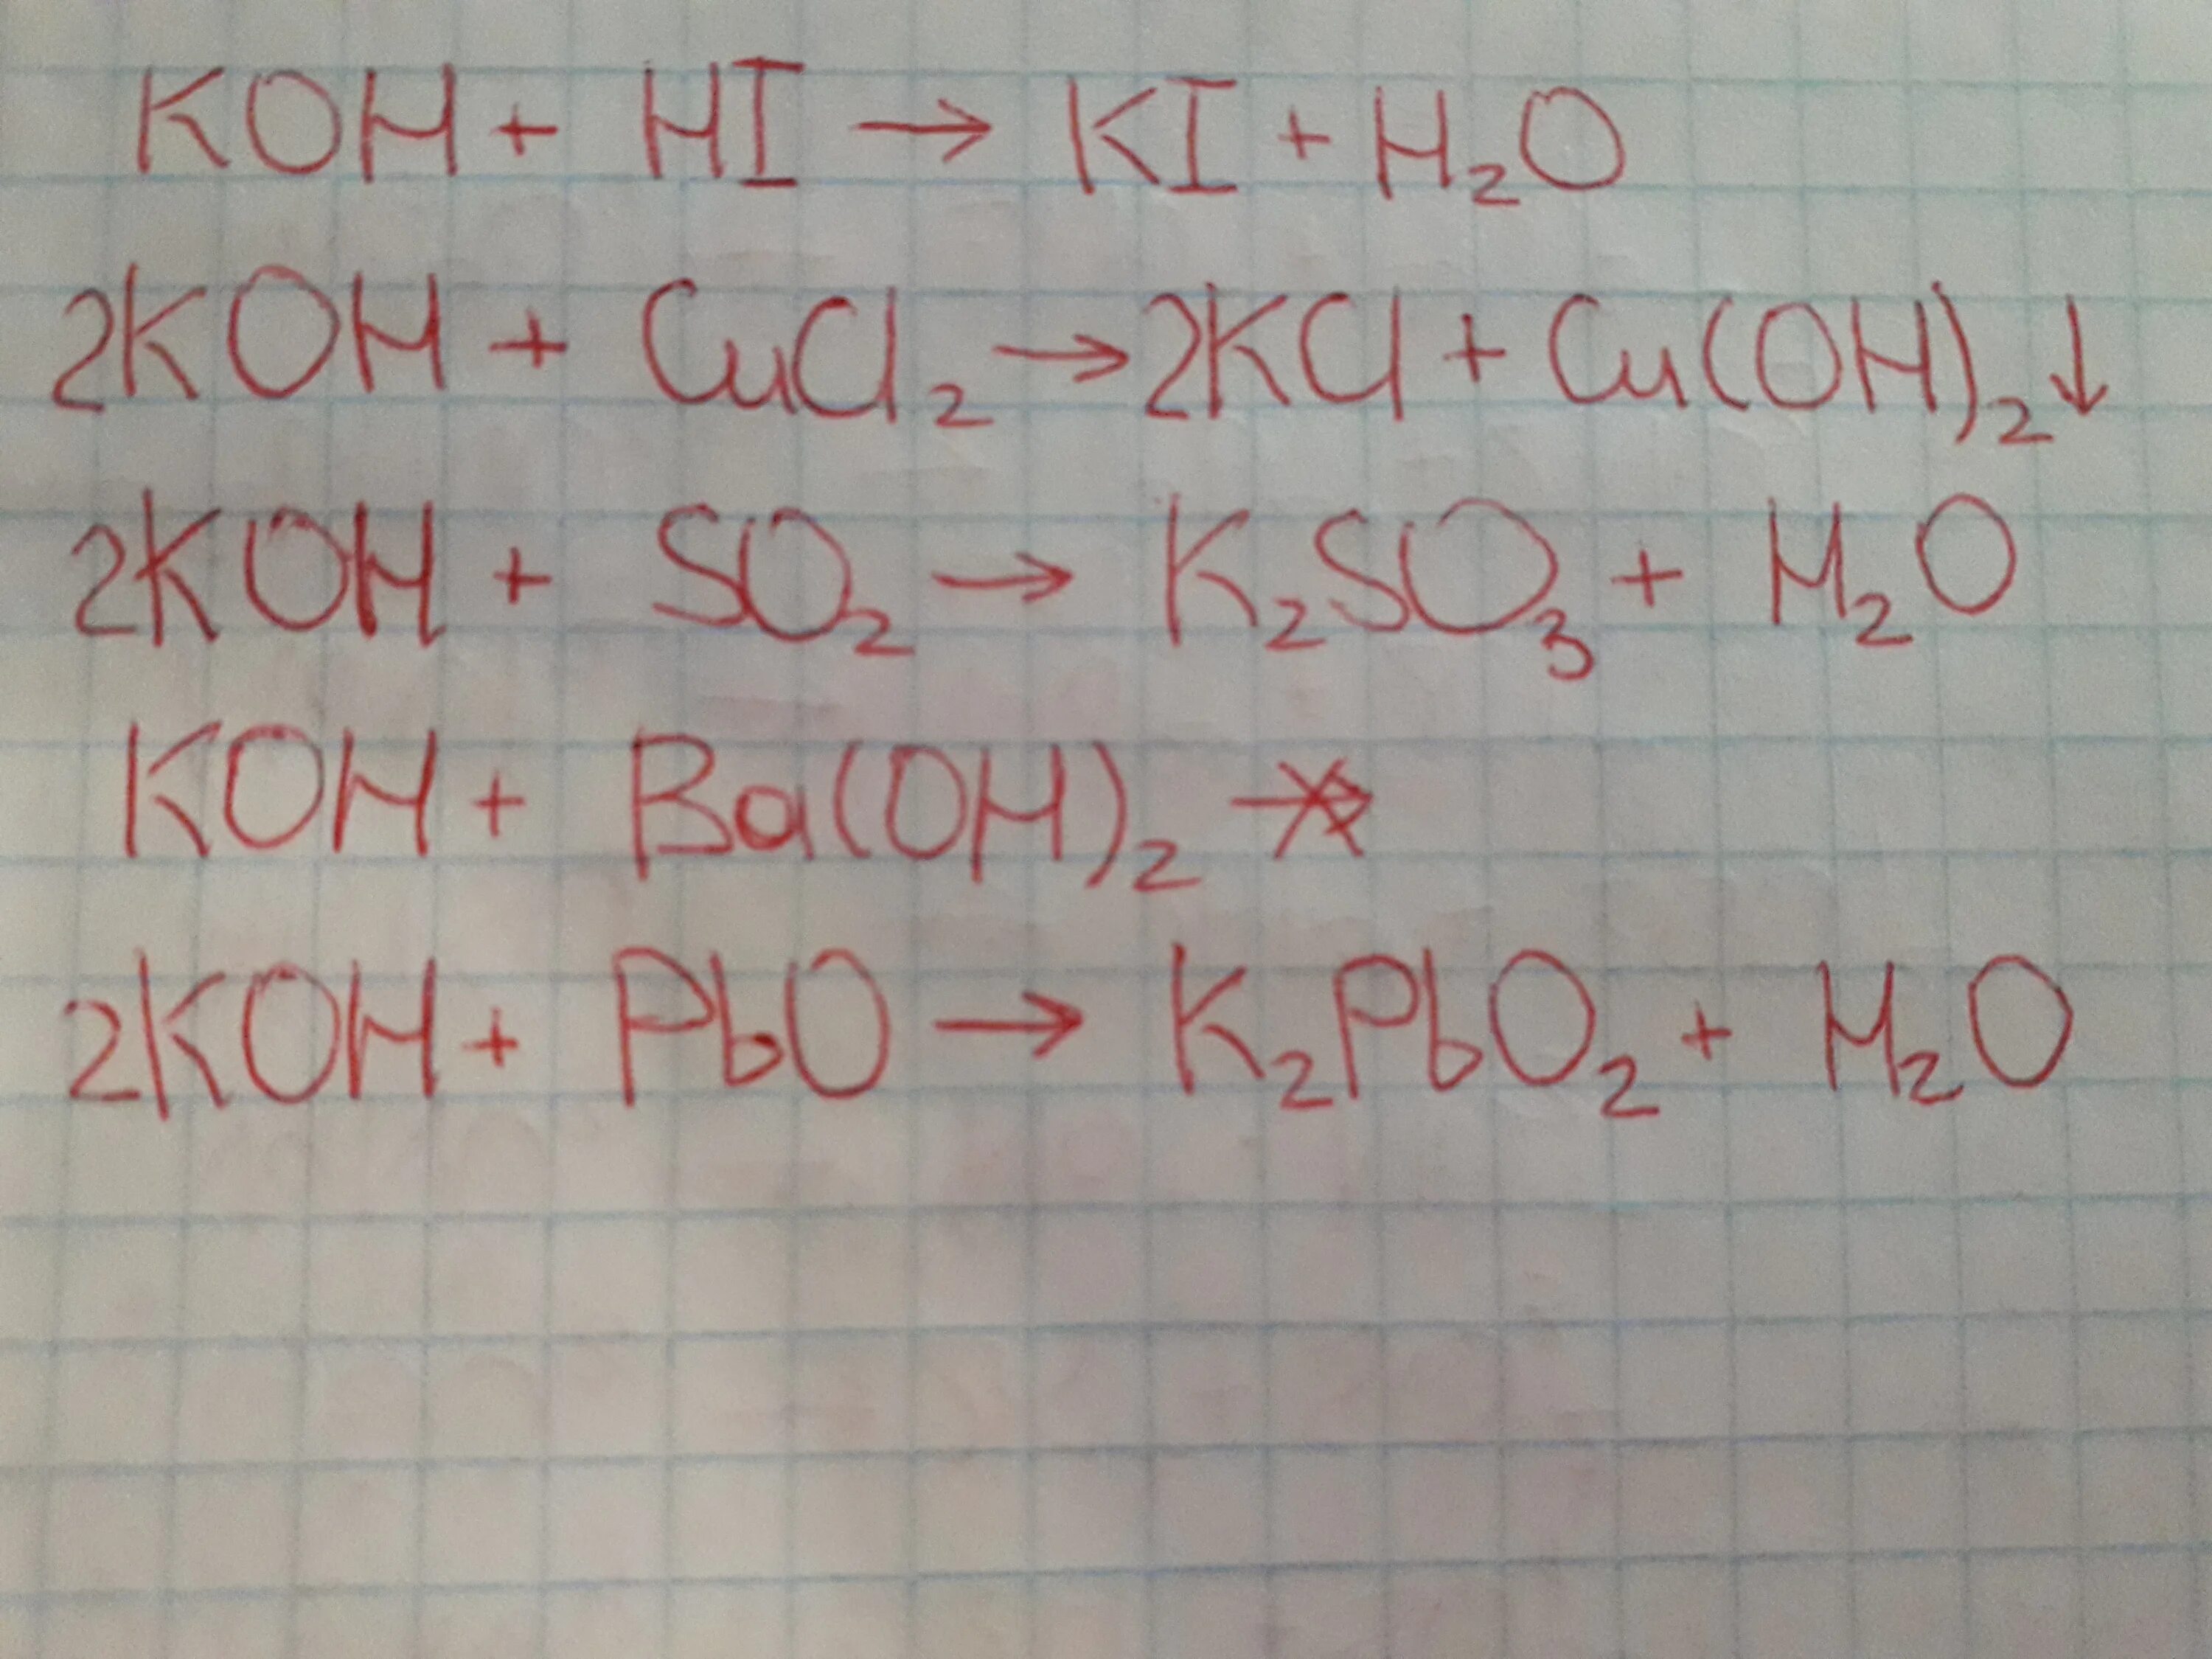 KOH + HI → KI + H₂O
2KOH + CuCl₂ → 2KCl + Cu(OH)₂↓
2KOH + SO₂ → K₂SO₃ + H₂O
KOH + Ba(OH)₂ ↛
2KOH + PbO → K₂PbO₂ + H₂O